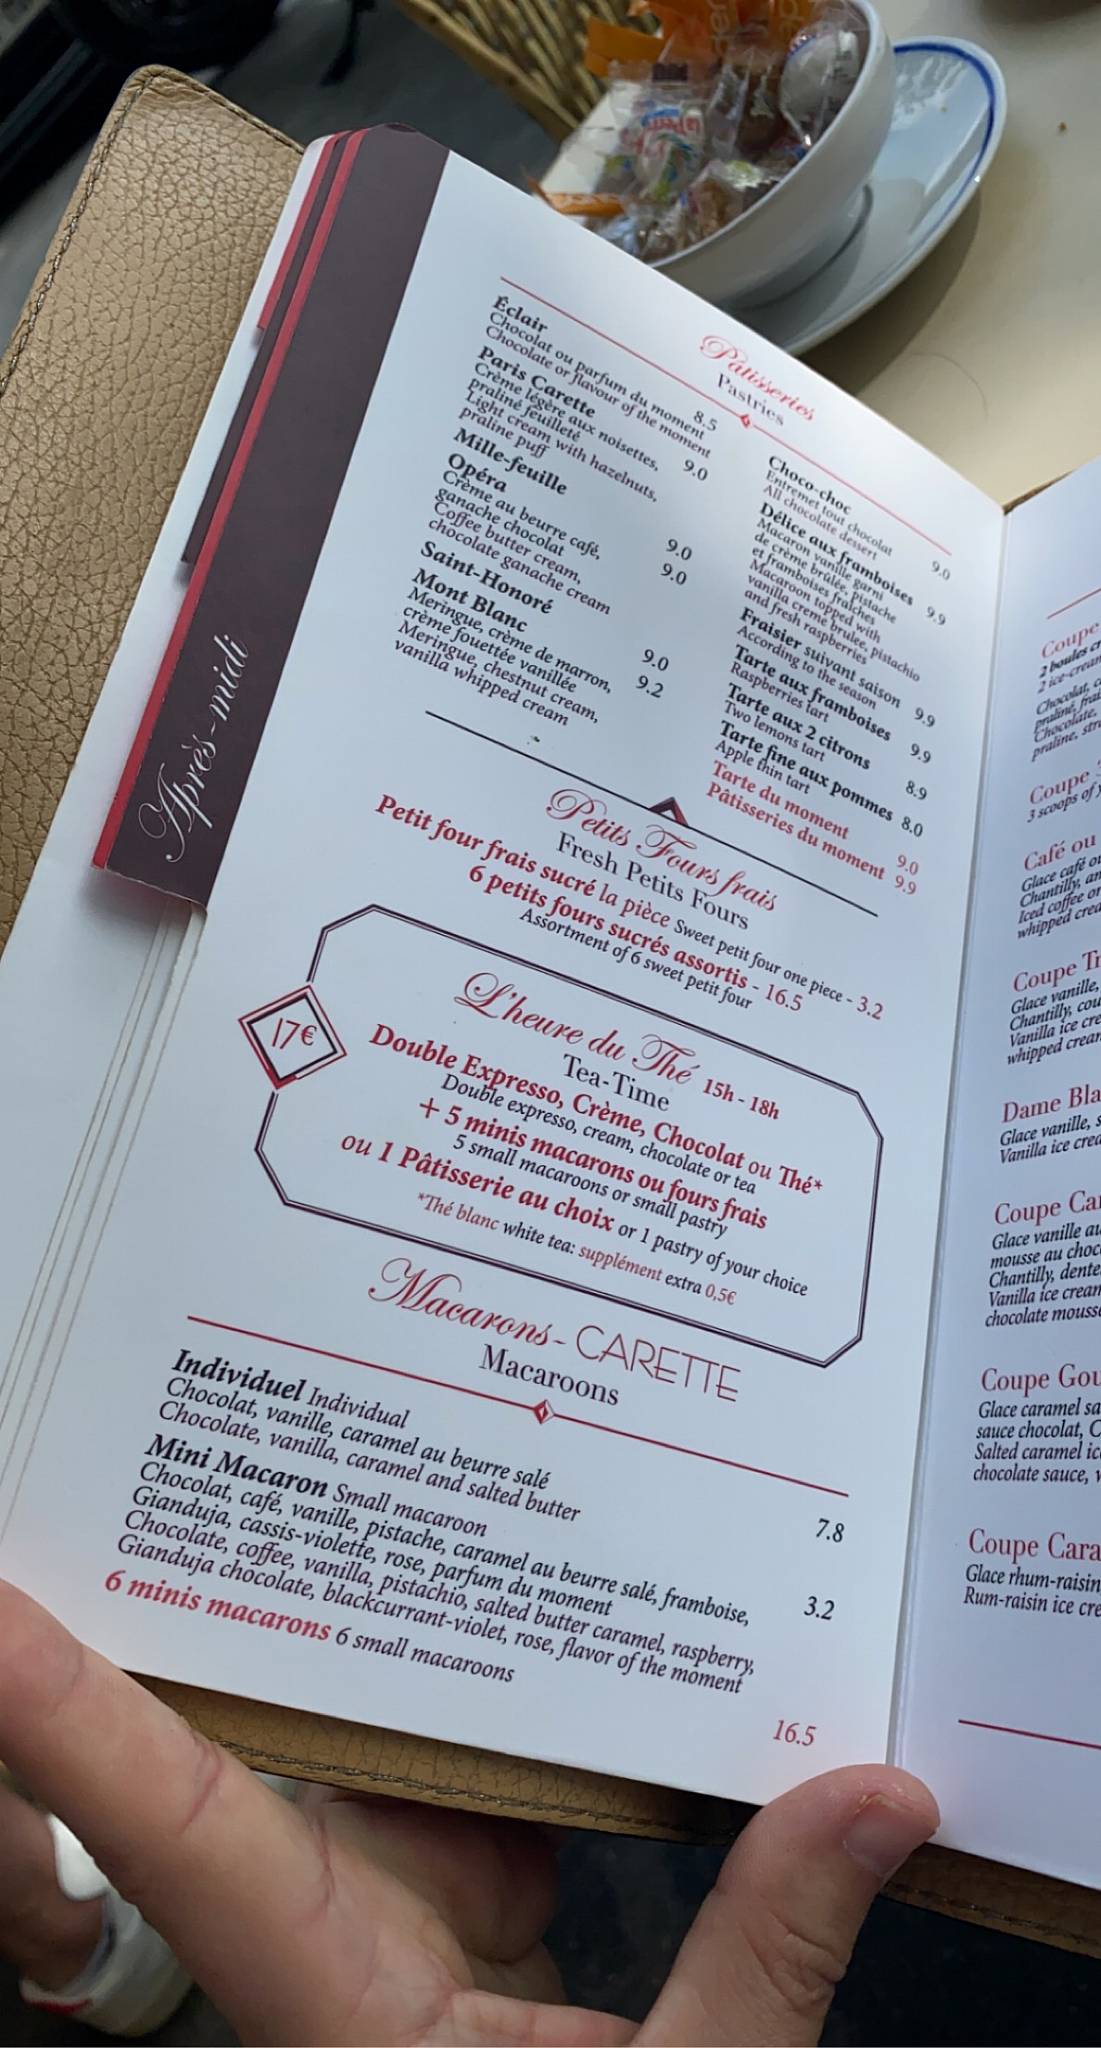 Après-midi
Pâtisseries
Pastries
Éclair
Chocolat ou parfum du moment 8.5
Chocolate or flavour of the moment
Paris Carette 9.0
Crème légère aux noisettes,
praliné feuilleté
Light cream with hazelnuts,
praline puff
Mille-feuille 9.0
Opéra 9.0
Crème au beurre café,
ganache chocolat
Coffee butter cream,
chocolate ganache cream
Saint-Honoré 9.0
Mont Blanc 9.2
Meringue, crème de marron,
crème fouettée vanillée
Meringue, chestnut cream,
vanilla whipped cream
Choco-choc 9.0
Entremet tout chocolat
All chocolate dessert
Délice aux framboises 9.9
Macaron vanille garni
de crème brûlée, pistache
et framboises fraîches
Macaroon topped with
vanilla creme brulee, pistachio
and fresh raspberries
Fraisier suivant saison 9.9
According to the season
Tarte aux framboises 9.9
Raspberries tart
Tarte aux 2 citrons 8.9
Two lemons tart
Tarte fine aux pommes 8.0
Apple thin tart
Tarte du moment 9.0
Pâtisseries du moment 9.9
Petits Fours frais
Fresh Petits Fours
Petit four frais sucré la pièce Sweet petit four one piece - 3.2
6 petits fours sucrés assortis - 16.5
Assortment of 6 sweet petit four
17€
L'heure du Thé 15h - 18h
Tea-Time
Double Expresso, Crème, Chocolat ou Thé*
Double expresso, cream, chocolate or tea
+ 5 minis macarons ou fours frais
5 small macaroons or small pastry
ou 1 Pâtisserie au choix or 1 pastry of your choice
*Thé blanc white tea: supplément extra 0,5€
Macarons - CARETTE
Macaroons
Individuel Individual 7.8
Chocolat, vanille, caramel au beurre salé
Chocolate, vanilla, caramel and salted butter
Mini Macaron Small macaroon 3.2
Chocolat, café, vanille, pistache, caramel au beurre salé, framboise,
Gianduja, cassis-violette, rose, parfum du moment
Chocolate, coffee, vanilla, pistachio, salted butter caramel, raspberry,
Gianduja chocolate, blackcurrant-violet, rose, flavor of the moment
6 minis macarons 6 small macaroons 16.5
Coupe
2 boules
2 ice-cream
Chocolat,
praliné,
Chocolate,
praline,
Coupe
3 scoops of
Café ou
Glace café
Chantilly,
Iced coffee
whipped
Coupe
Glace vanille,
Chantilly,
Vanilla ice
whipped
Dame
Glace vanille,
Vanilla ice
Coupe
Glace vanille
mousse au
Chantilly,
Vanilla ice
chocolate
Coupe
Glace caramel
sauce chocolat,
Salted caramel
chocolate sauce,
Coupe
Glace rhum-raisin
Rum-raisin ice